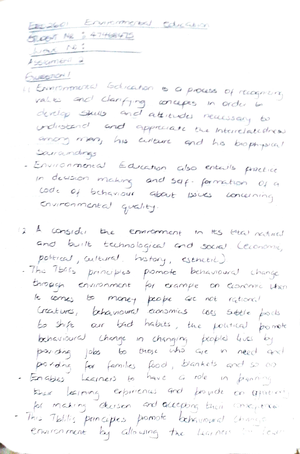 Environmental Education
Assignment
Question 1
1) Environmental Education is a process of recognizing
value and clarifying concepts in order to
develop skills and attitudes necessary to
understand and appreciate the interrelatedness
among man, his culture and his biophysical
surroundings
- Environmental Education also entails practice
in decision making and self-formation of a
code of behaviour about issues concerning
environmental quality.
2 consider the environment in its total natural
and built technological and social (economic,
political, cultural history, esthetic)
- The Tbilisi principles promote behavioural change
through environment for example on economic when
it comes to money people are not rational
creatures, behavioural economics uses subtle
to shift our bad habits, the political promote
behavioural change in changing people lives by
providing jobs to those who are in need and
providing for families food, blankets and so on
- Enables learners to have a role in planning
their learning experiences and provide an
for making decision and accepting their
- The Tbilisi principles promote behavioural
environment by allowing the learner to